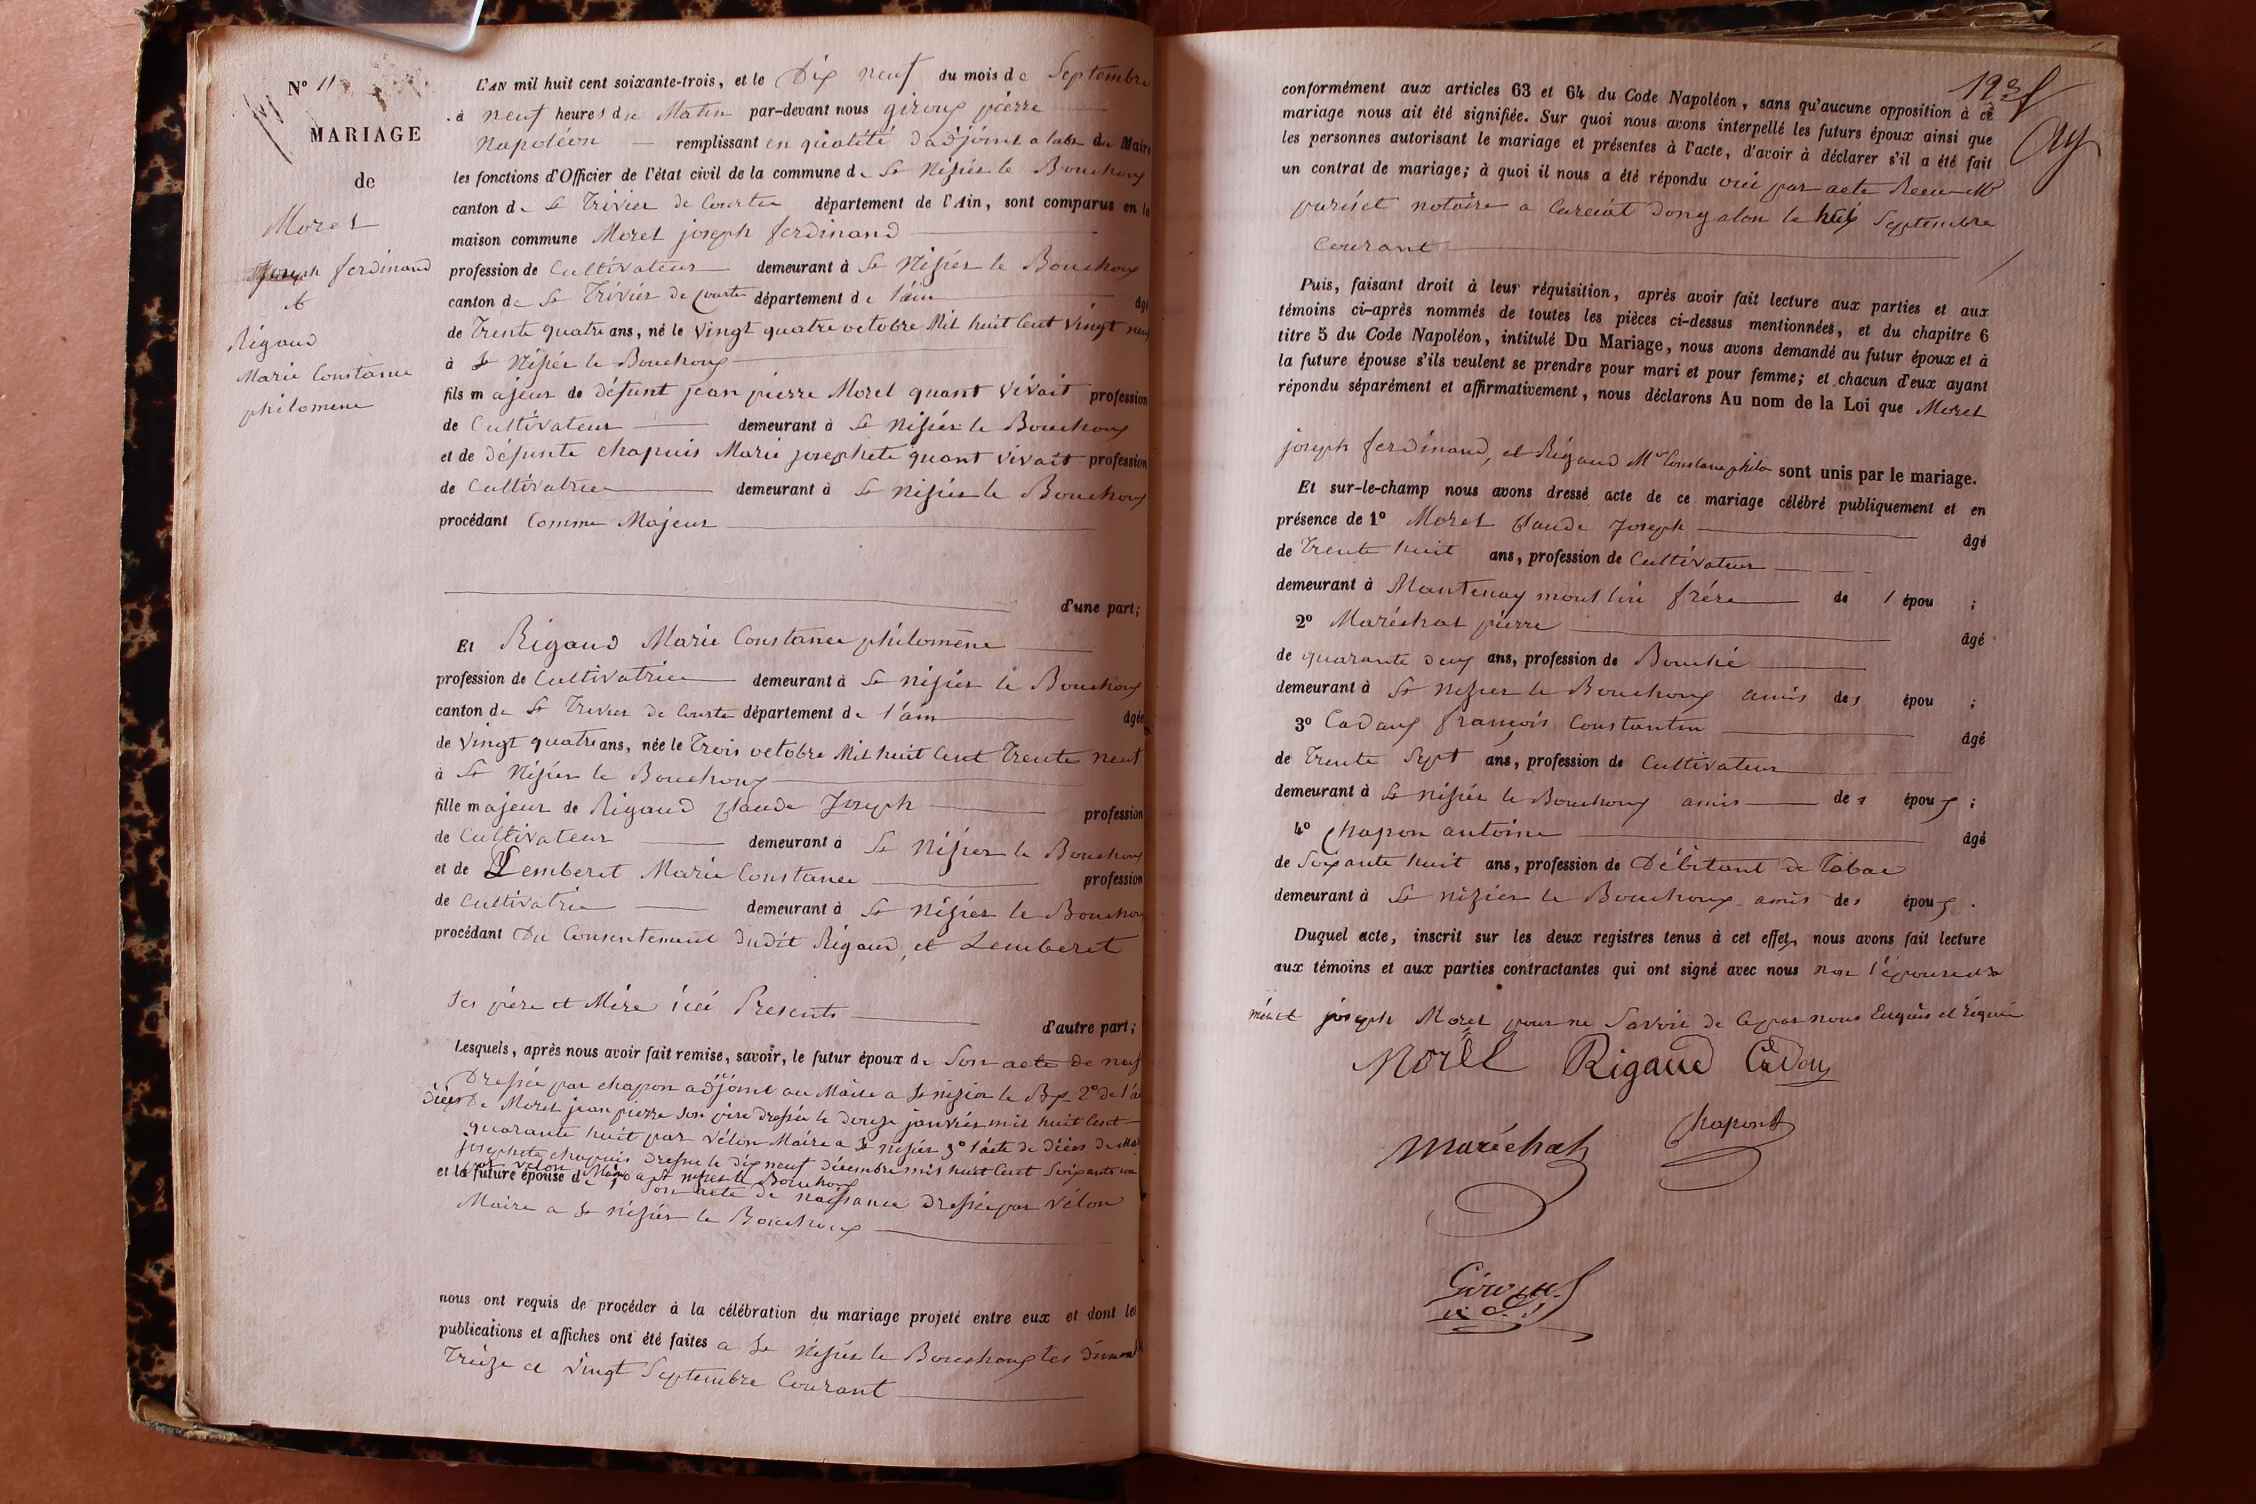 N° 11
MARIAGE
de
Morel
Joseph ferdinand
&
Rigaud
Marie Constance
philomene
L'AN mil huit cent soixante-trois, et le Dix neuf du mois de Septembre
à neuf heures du Matin par-devant nous giroux pierre
Napoléon remplissant en qualité d'adjoint a labs du Maire
les fonctions d'Officier de l'état civil de la commune de St Nizier le Bouchoux
canton de St Trivier de Courtes département de l'Ain, sont comparus en la
maison commune Morel joseph ferdinand
profession de Cultivateur demeurant à St Nizier le Bouchoux
canton de St Trivier de Courtes département de l'ain âgé
de Trente quatre ans, né le vingt quatre octobre Mil huit Cent vingt neuf
à St Nizier le Bouchoux
fils majeur de défunt jean pierre Morel quant vivait profession
de Cultivateur demeurant à St Nizier le Bouchoux
et de défunte chapuis Marie josephete quant vivait profession
de Cultivatrice demeurant à St Nizier le Bouchoux
procédant Comme Majeur
d'une part;
Et Rigaud Marie Constance philomène
profession de Cultivatrice demeurant à St Nizier le Bouchoux
canton de St Trivier de Courte département de l'ain âgée
de vingt quatre ans, née le Trois octobre Mil huit Cent Trente neuf
à St Nizier le Bouchoux
fille majeur de Rigaud Claude Joseph profession
de Cultivateur demeurant à St Nizier le Bouchoux
et de Lemberet Marie Constance profession
de Cultivatrice demeurant à St Nizier le Bouchoux
procédant Du Consentement dudit Rigaud, et Lemberet
Ses père et Mère ici Presents
d'autre part;
Lesquels, après nous avoir fait remise, savoir, le futur époux de Son acte de
Dressée par chapon adjoint au Maire a St nizier le Bx 2° de l'a
décès De Morel jean pierre son père dressée le douze janvier mil huit Cent
quarante huit par vélon Maire a St nizier 3° l'acte de décès de
josephete chapuis dressee le dix neuf décembre mil huit Cent Soixante
par velon Maire a St nizier le Bouchoux
et la future épouse de Son acte de naissance dressée par vélon
Maire a St nizier le Bouchoux
nous ont requis de procéder à la célébration du mariage projeté entre eux et dont les
publications et affiches ont été faites a St Nizier le Bouchoux les
Treize et vingt Septembre Courant
123
conformément aux articles 63 et 64 du Code Napoléon, sans qu'aucune opposition à ce
mariage nous ait été signifiée. Sur quoi nous avons interpellé les futurs époux ainsi que
les personnes autorisant le mariage et présentes à l'acte, d'avoir à déclarer s'il a été fait
un contrat de mariage; à quoi il nous a été répondu oui par acte Recu Me
puriset notaire a Curciat Dongalon le huit Septembre
Courant
Puis, faisant droit à leur réquisition, après avoir fait lecture aux parties et aux
témoins ci-après nommés de toutes les pièces ci-dessus mentionnées, et du chapitre 6
titre 5 du Code Napoléon, intitulé Du Mariage, nous avons demandé au futur époux et à
la future épouse s'ils veulent se prendre pour mari et pour femme; et chacun d'eux ayant
répondu séparément et affirmativement, nous déclarons Au nom de la Loi que Morel
joseph ferdinand, et Rigaud Mie Constance philo sont unis par le mariage.
Et sur-le-champ nous avons dressé acte de ce mariage célébré publiquement et en
présence de 1° Morel Claude Joseph âgé
de Trente huit ans, profession de Cultivateur
demeurant à Mantenay montlin frére de l épou ;
2° Maréchal pierre âgé
de quarante deux ans, profession de Bouché
demeurant à St nizier le Bouchoux amis des épou ;
3° Cadoux françois Constantin âgé
de Trente Sept ans, profession de Cultivateur
demeurant à St nizier le Bouchoux amis des époux ;
4° Chapon antoine âgé
de Soixante huit ans, profession de Débitant de Tabac
demeurant à St nizier le Bouchoux amis des époux .
Duquel acte, inscrit sur les deux registres tenus à cet effet, nous avons fait lecture
aux témoins et aux parties contractantes qui ont signé avec nous non l'épouse et sa
joseph Morel pour ne Savoir de Ce par nous Enquis et
Morel Rigaud Cadoux
Maréchal Chapon
Giroux